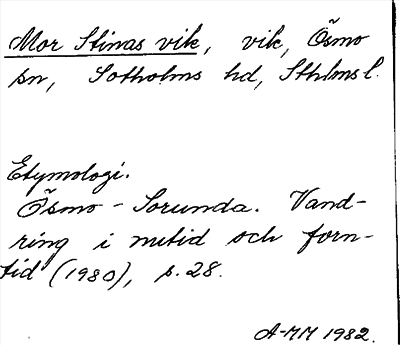 Mor Stinas vik, vik, Ösmo
sn, Sotholms hd, Sthlms l.
Etymologi.
Ösmo - Sorunda. Vand-
ring i nutid och forn-
tid (1980), s. 28.
A-MM 1982.